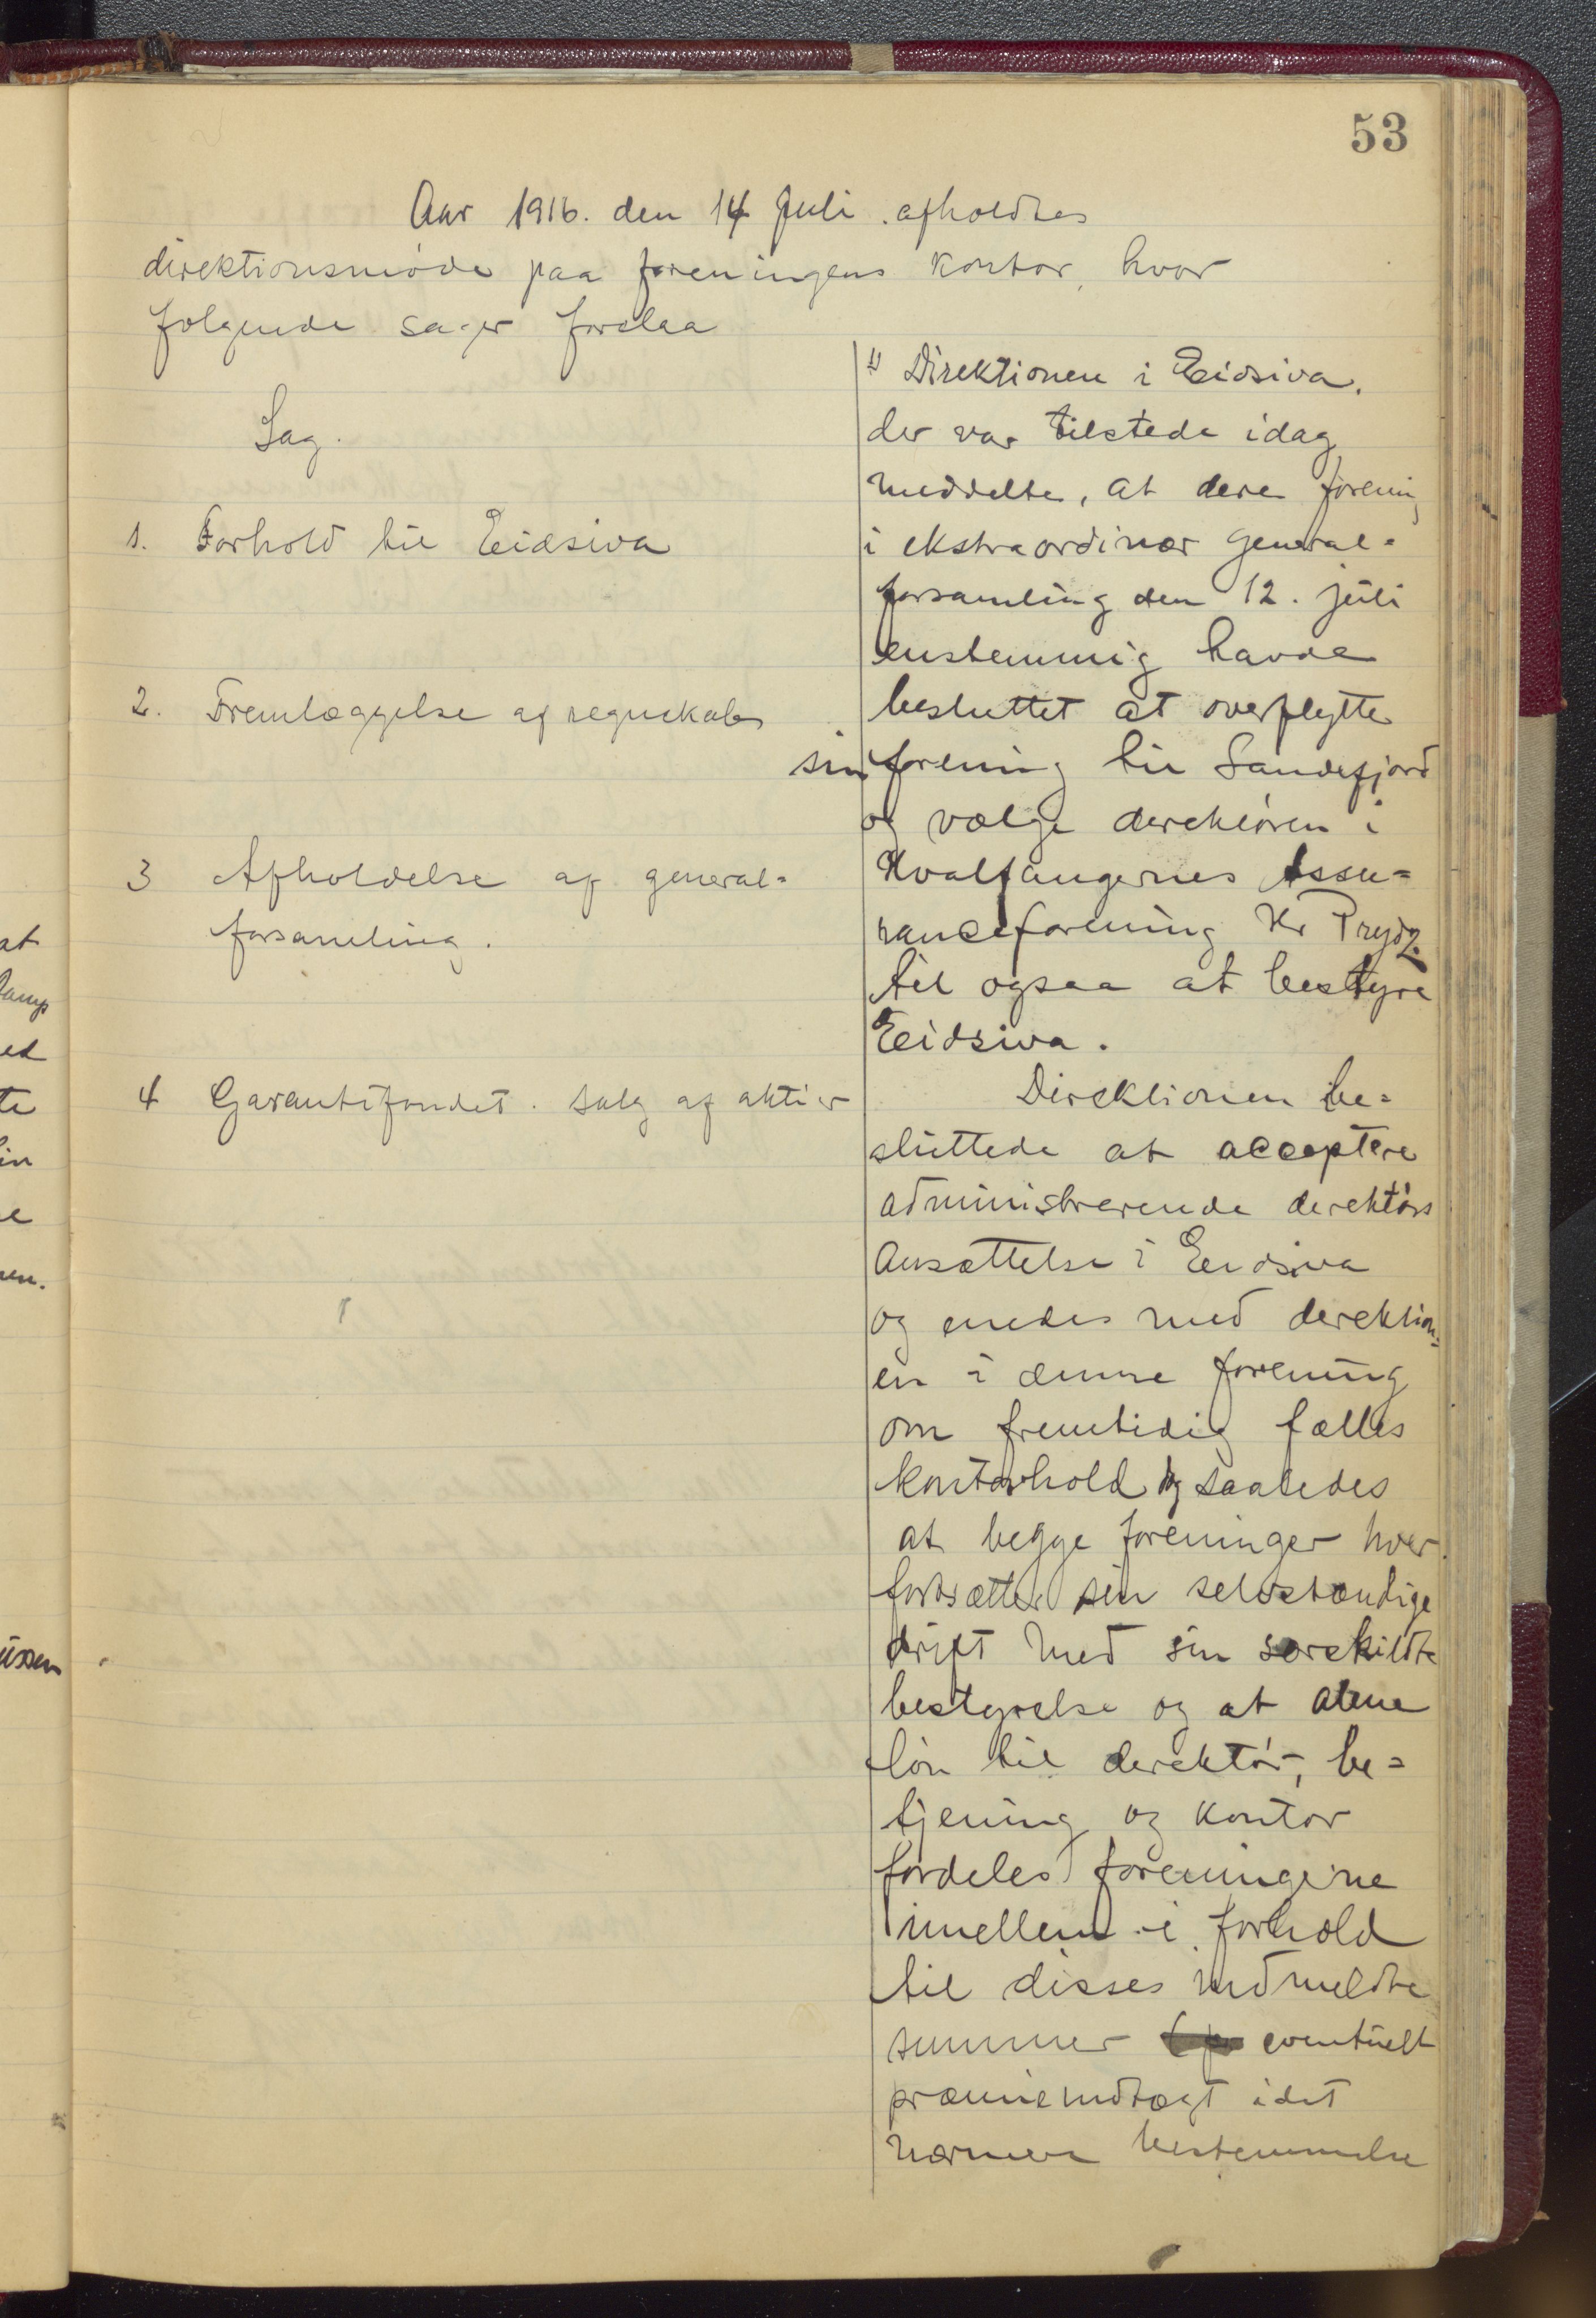 53
Aar 1916. den 14 Juli. afholdtes
direktionsmøde paa foreningens kontor, hvor
følgende sager forelaa
Sag.
1. Forhold til Eidsiva
2. Fremlæggelse af regnskab
3 Afholdelse af general=
forsamling.
4 Garantifondet. Salg af aktier
1) Direktionen i Eidsiva.
der var tilstede idag
meddelte, at dere forening
i ekstraordinær general=
forsamling den 12. juli
enstemmig havde
besluttet at overflytte
sin forening til Sandefjord
og vælge derektøren i
Hvalfangernes Assu=
ranceforening Hr Prydz
til ogsaa at bestyre
Eidsiva.
Direktionen be=
sluttede at acceptere
administrerende derektørs
Ansættelse i Eidsiva
og enedes med derektion=
en i denne forening
om fremtidig fælles
kontorhold og saaledes
at begge foreninger hver
fortsætter sin selvstændige
drift med sin særskildte
bestyrelse og at alene
løn til derektør, be=
tjening og kontor
fordeles foreningerne
imellem i forhold
til disses indmeldte
summer eventuelt
præmieindtægt idet
nærmere bestemmelse
at
ed
te
in
e
en.
ussen